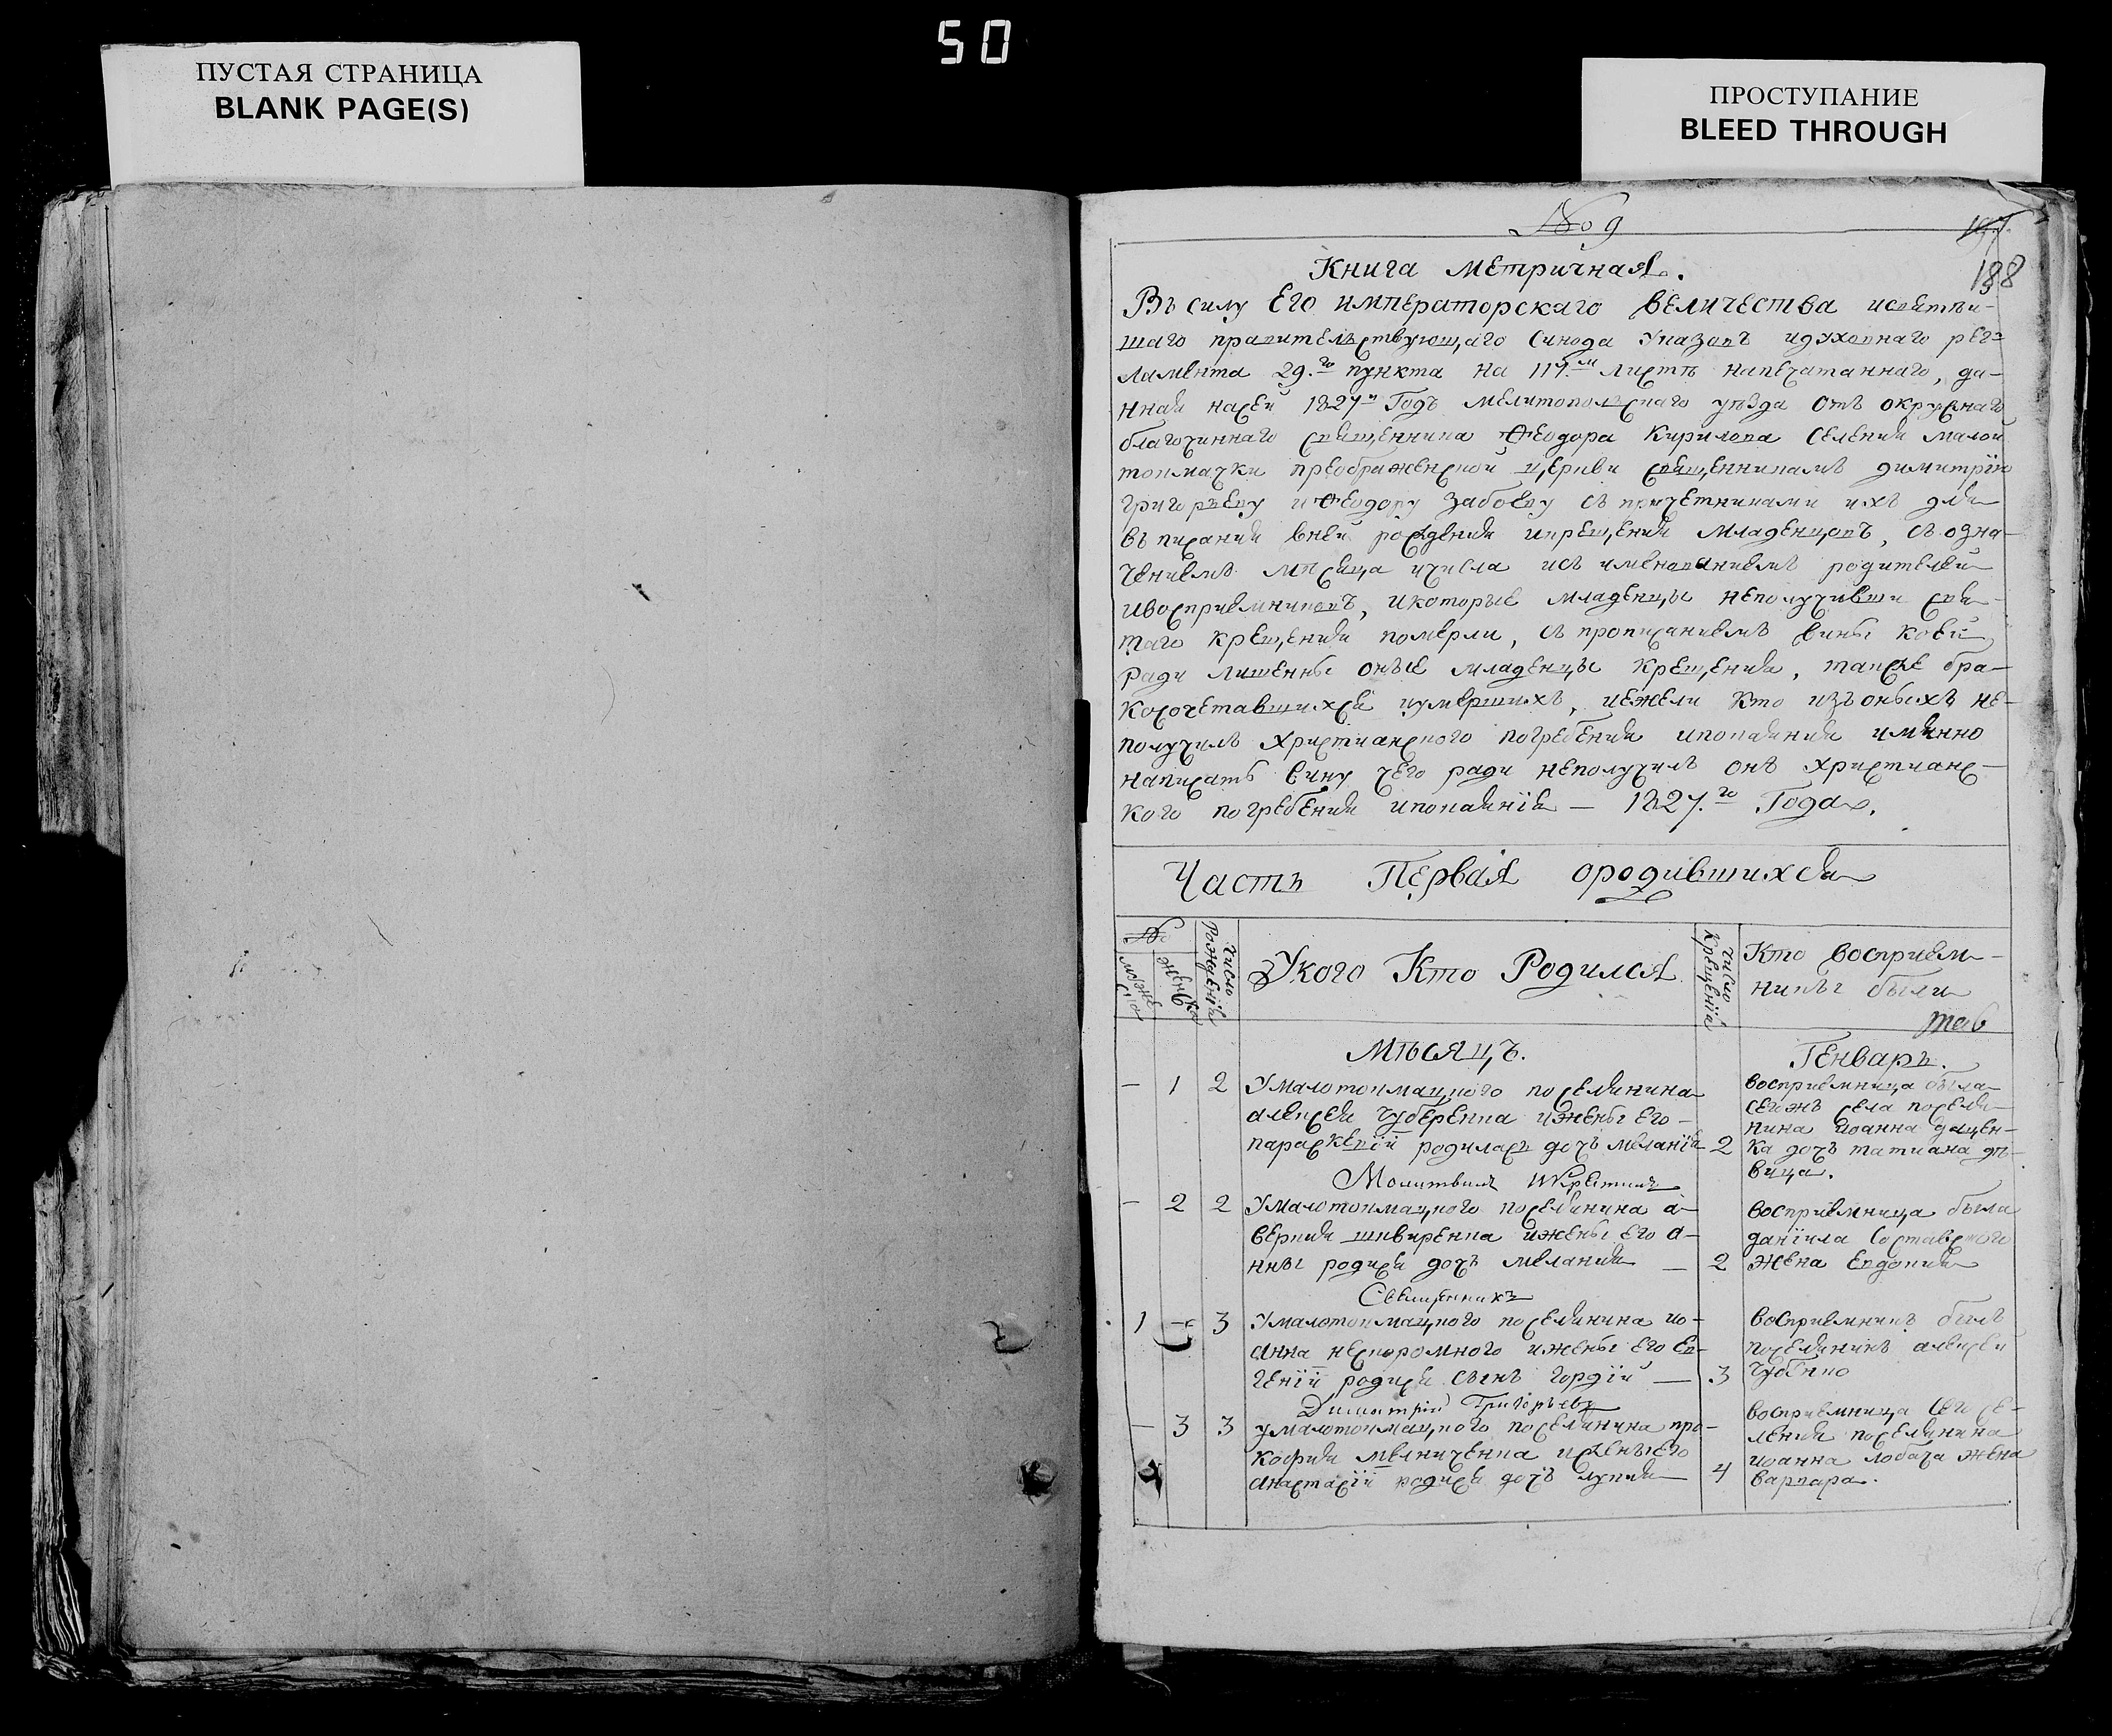 50
ПУСТАЯ СТРАНИЦА
BLANK PAGE(S)
ПРОСТУПАНИЕ
BLEED THROUGH
№ 9
197.
188
Книга метричная.
Въ силу Его императорскаго величества исвятѣй-
шаго правительствующаго Синода Указовъ идуховнаго рег-
ламента 29.го пункта на 117.м листѣ напечатаннаго, да-
нная насей 1827й Годъ мелитопольскаго уѣзда отъ окружнаго
благочиннаго священника Феодора Кирилова селения малой
токмачки преображенской церкви священникамъ димитрію
григорьеву иФеодору Забоеву съ причетниками ихъ для
въписания вней рождения икрещения младенцовъ, съ озна-
чениемъ мѣсяца ичисла исъ именованиемъ родителей
ивосприемниковъ, икоторые младенцы неполучивши свя-
таго крещения померли, съ прописаниемъ вины коей
ради лишенны оные младенцы крещения, также бра-
косочетавшихся иумершихъ, иежели кто изъоныхъ не-
получилъ христианского погребения ипопаяния имянно
написать вину чего ради неполучилъ онъ христианс-
кого погребения ипопаянія — 1827.го Года.
Часть Первая ородившихся
№
мужеска
женска
число Рожденія
Укого Кто Родился
число Крещенія
Кто восприем-
ники были
Мѣсяцъ.
Генварь.
— 1 2 Умалотокмацкого поселянина
алексея Губеренка ижены его
параскевіи родилась дочь меланія 2
восприемница была
сегожъ села поселя-
нина иоанна даценка
ка дочь татиана дѣ-
вица.
Молитвил иКрестил
— 2 2 Умалотокмацкого поселянина а-
веркия шкиренка ижены его а-
нны родися дочь мелания — 2
восприемница была
даніила
жена евдокия
Священникъ
1 — 3 Умалотокмацкого поселянина ио-
анна нескоромного ижены его ев-
гении родися сынъ гордій — 3
восприемникъ былъ
поселянинъ алексей
Димитрій Григорьевъ
— 3 3 умалотокмацкого поселянина про-
кофия мелниченка иженыего
анастасіи родися дочь лукия 4
восприемница сего се-
ления поселянина
иоанна лобача жена
варвара.